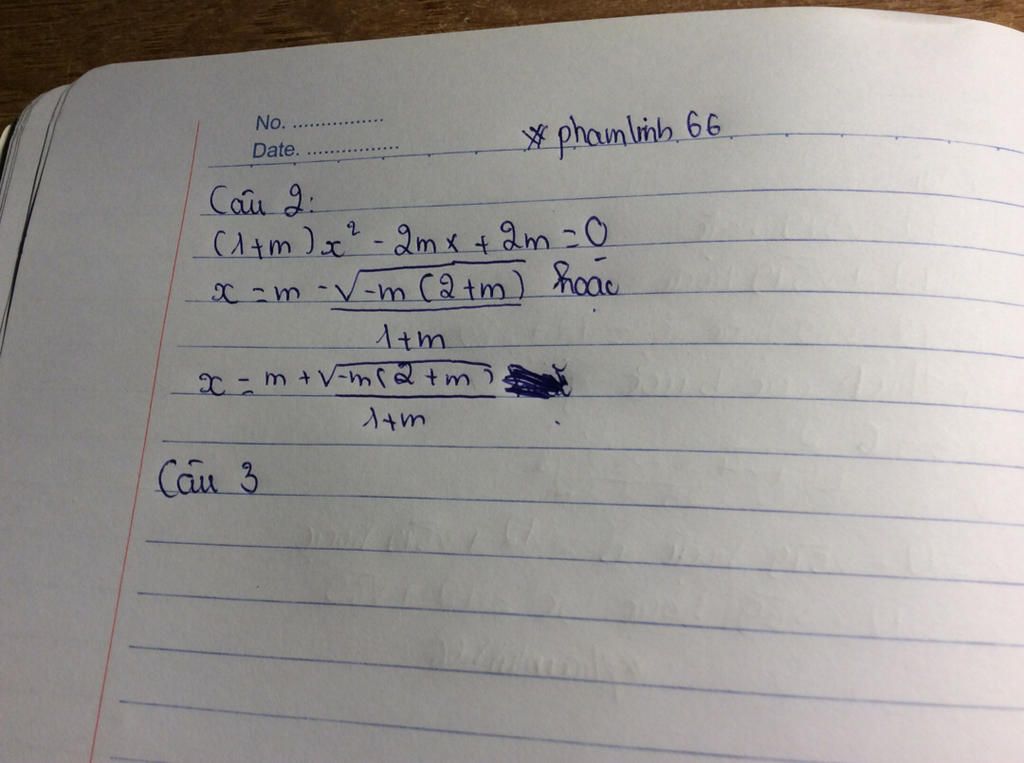 No. ................
Date. ................
* phamlinh 66
Câu 2:
(1+m)x² - 2mx + 2m = 0
x = m - √-m(2+m) hoặc
1+m
x = m + √-m(2+m)
1+m
Câu 3